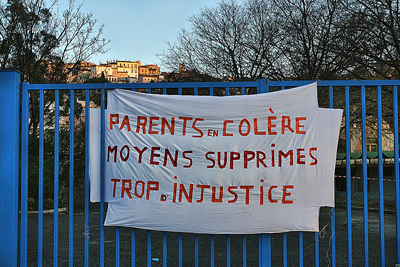 PARENTS EN COLÈRE
MOYENS SUPPRIMES
TROP D'INJUSTICE